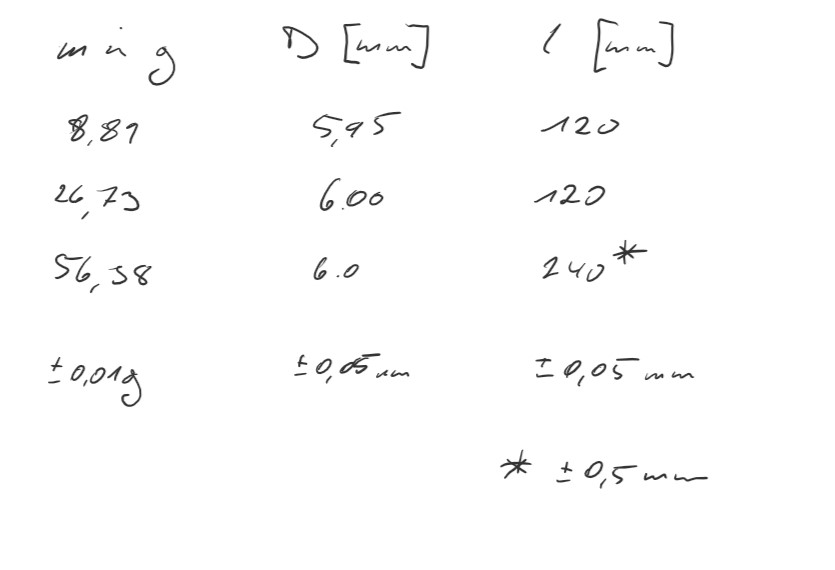 m in g D [mm] l [mm]
8,81 5,95 120
26,73 6.00 120
56,38 6.0 240*
±0,01g ±0,05mm ±0,05mm
* ±0,5mm